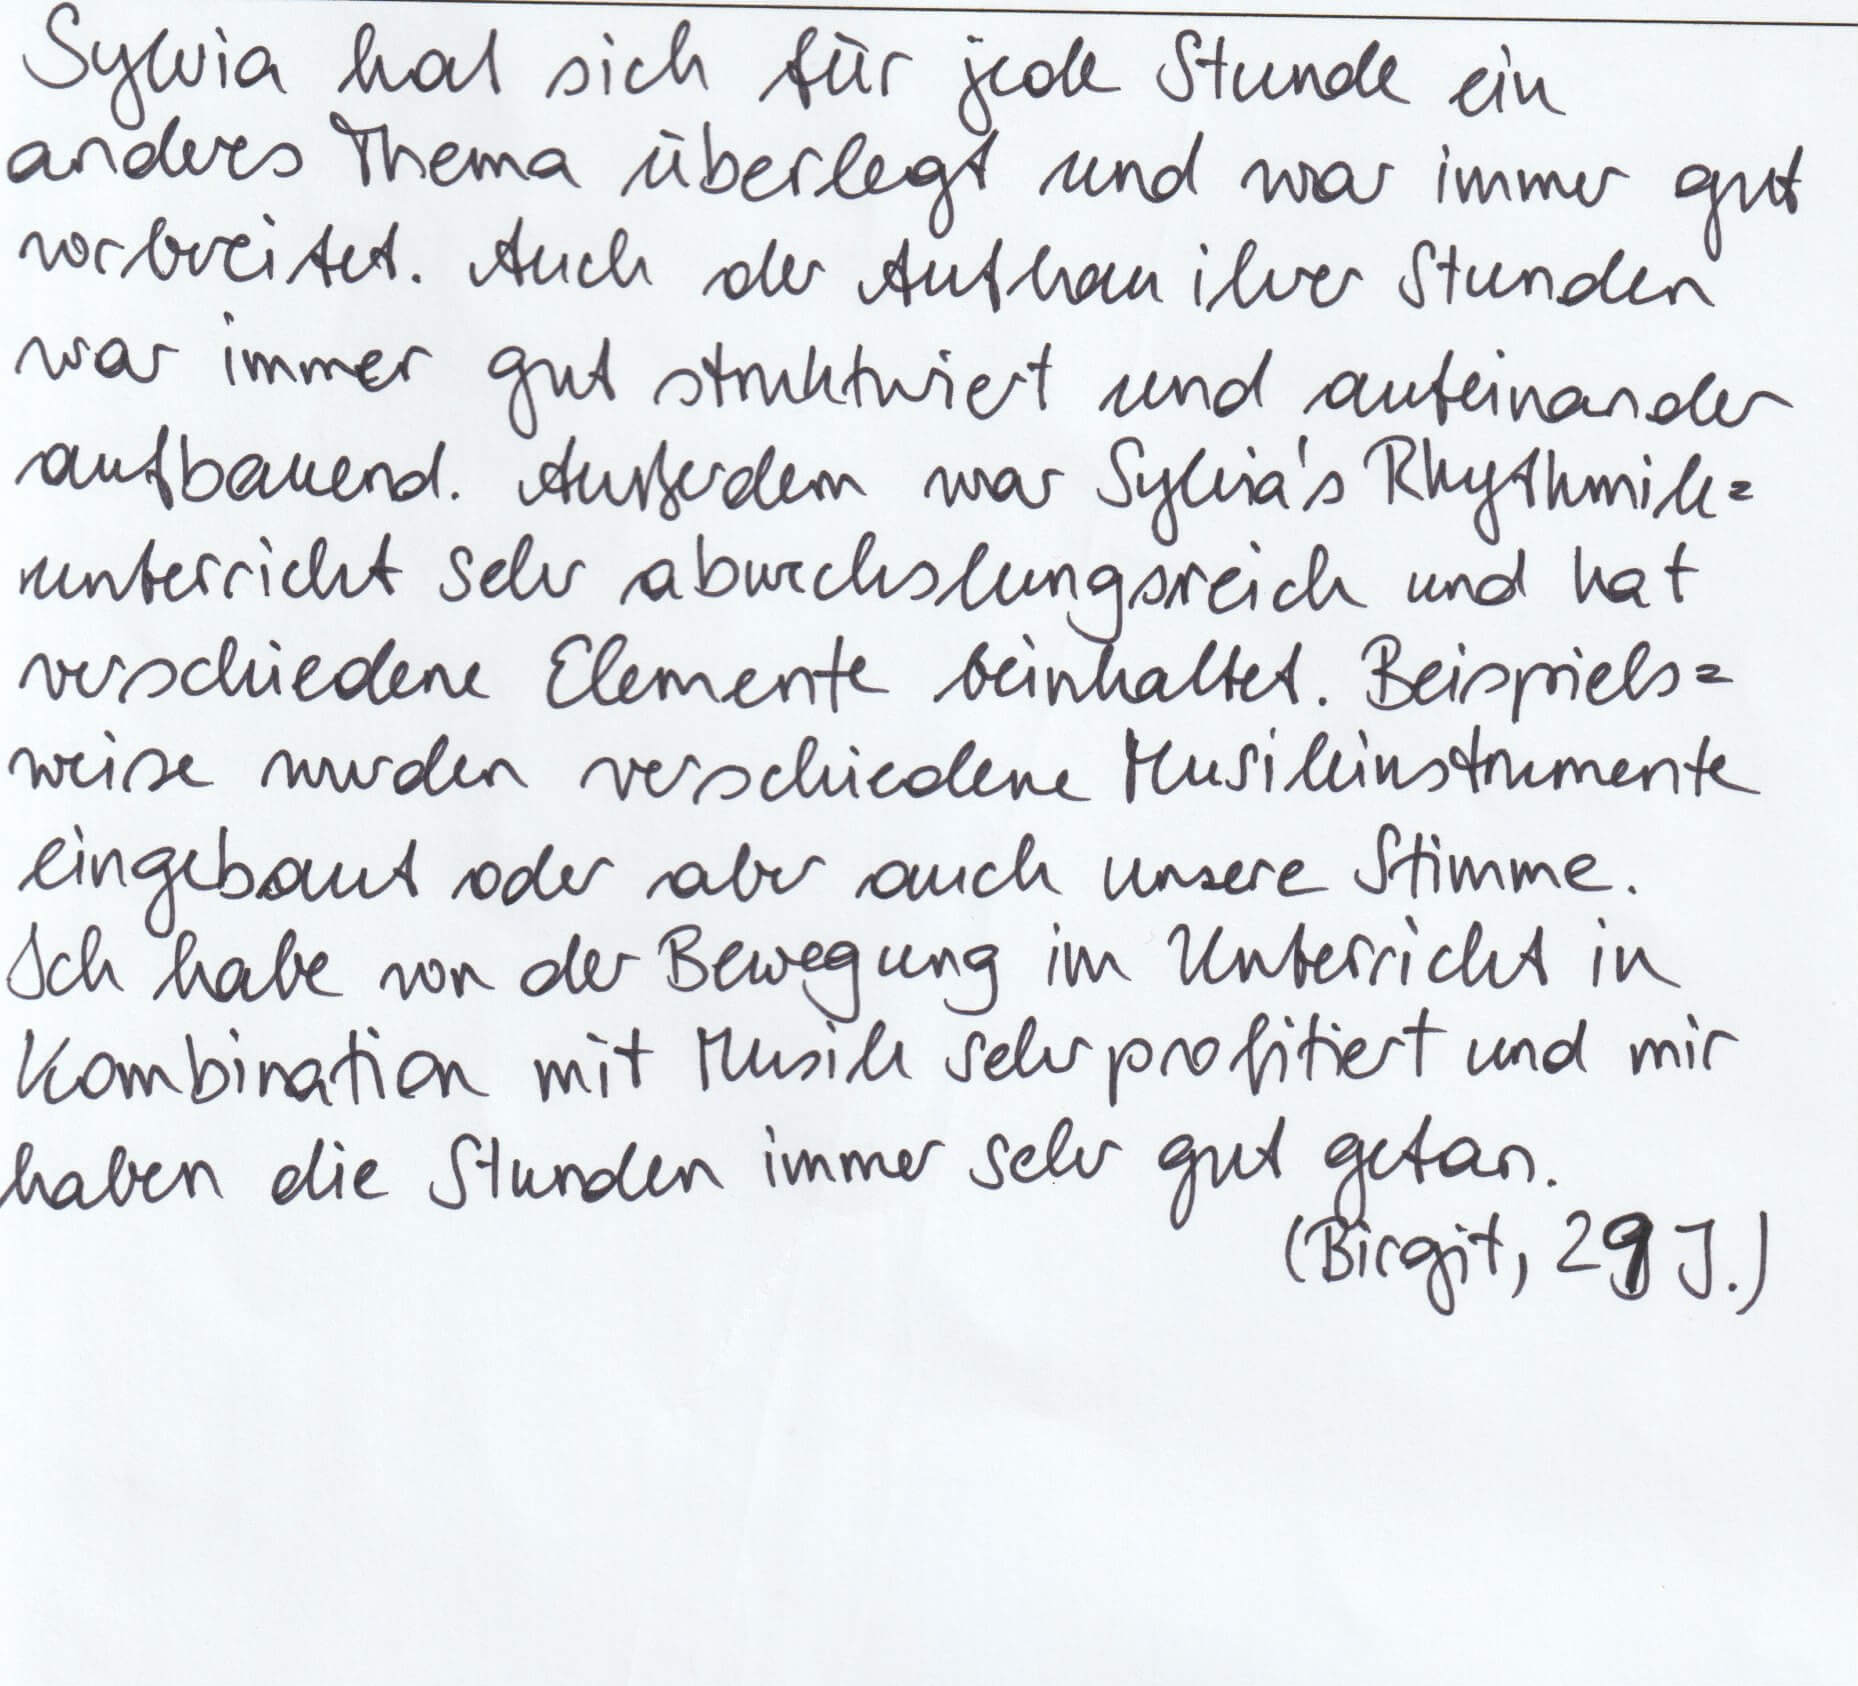 Sylvia hat sich für jede Stunde ein
anderes Thema überlegt und war immer gut
vorbereitet. Auch der Aufbau ihrer Stunden
war immer gut strukturiert und aufeinander
aufbauend. Außerdem war Sylvia's Rhythmik=
unterricht sehr abwechslungsreich und hat
verschiedene Elemente beinhaltet. Beispiels=
weise wurden verschiedene Musikinstrumente
eingebaut oder aber auch unsere Stimme.
Ich habe von der Bewegung im Unterricht in
Kombination mit Musik sehr profitiert und mir
haben die Stunden immer sehr gut getan.
(Birgit, 29 J.)